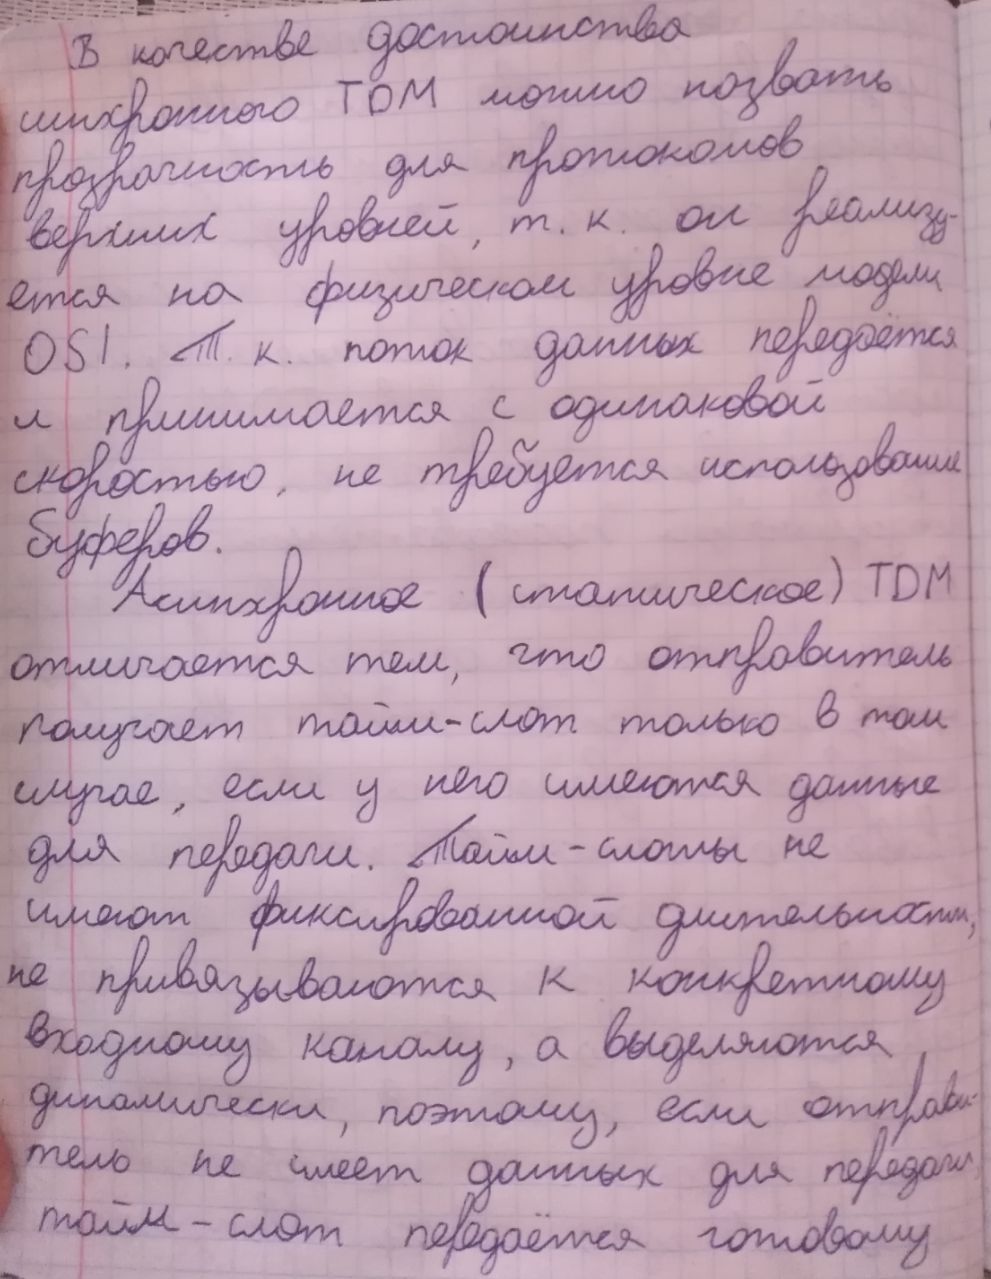 В качестве достоинства
синхронного TDM можно назвать
прозрачность для протоколов
верхних уровней, т. к. он реализу-
ется на физическом уровне модели
OSI. Т. к. поток данных передаётся
и принимается с одинаковой
скоростью, не требуется использование
буферов.
Асинхронное (статическое) TDM
отличается тем, что отправитель
получает тайм-слот только в том
случае, если у него имеются данные
для передачи. Тайм-слоты не
имеют фиксированной длительности,
не привязываются к конкретному
входному каналу, а выделяются
динамически, поэтому, если отправи-
тель не имеет данных для передачи,
тайм-слот передаётся готовому